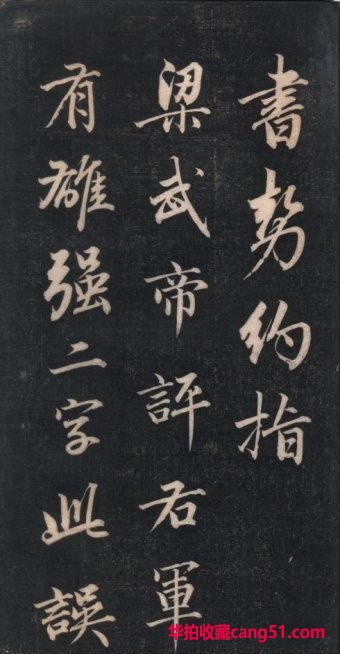 書勢約指
梁武帝評右軍
有雄强二字此誤
华拍收藏cang51.com